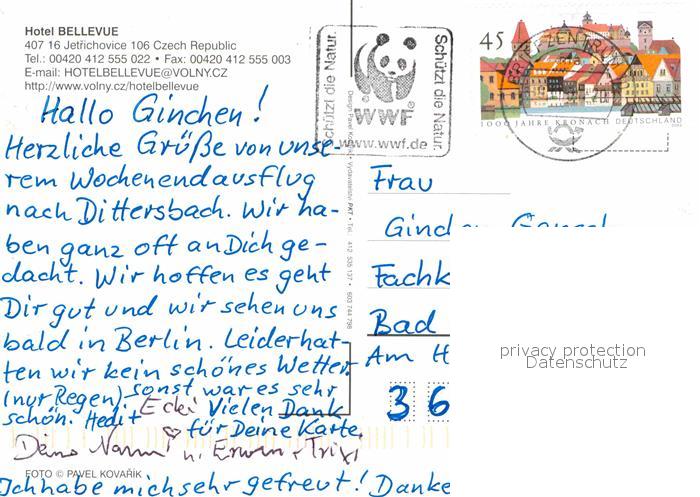 Hotel BELLEVUE
407 16 Jetřichovice 106 Czech Republic
Tel.: 00420 412 555 022 • Fax: 00420 412 555 003
E-mail: HOTELBELLEVUE@VOLNY.CZ
http://www.volny.cz/hotelbellevue
Hallo Ginchen!
Herzliche Grüße von unse-
rem Wochenendausflug
nach Dittersbach. Wir ha-
ben ganz oft an Dich ge-
dacht. Wir hoffen es geht
Dir gut und wir sehen uns
bald in Berlin. Leider hat-
ten wir kein schönes Wetter
(nur Regen) sonst war es sehr
schön. Hedit Ecki Vielen Dank
für Deine Karte.
Deine Nanni u. Erwin + Trixi
FOTO © PAVEL KOVAŘÍK
Ich habe mich sehr gefreut! Danke
Schützt die Natur.
WWF®
www.wwf.de
Schützt die Natur.
45
1000 JAHRE KRONACH DEUTSCHLAND
BRIEFZENTRUM
412 535 137 • 603 744 798
Frau
Fachk
Bad
Am H
3 6
privacy protection
Datenschutz